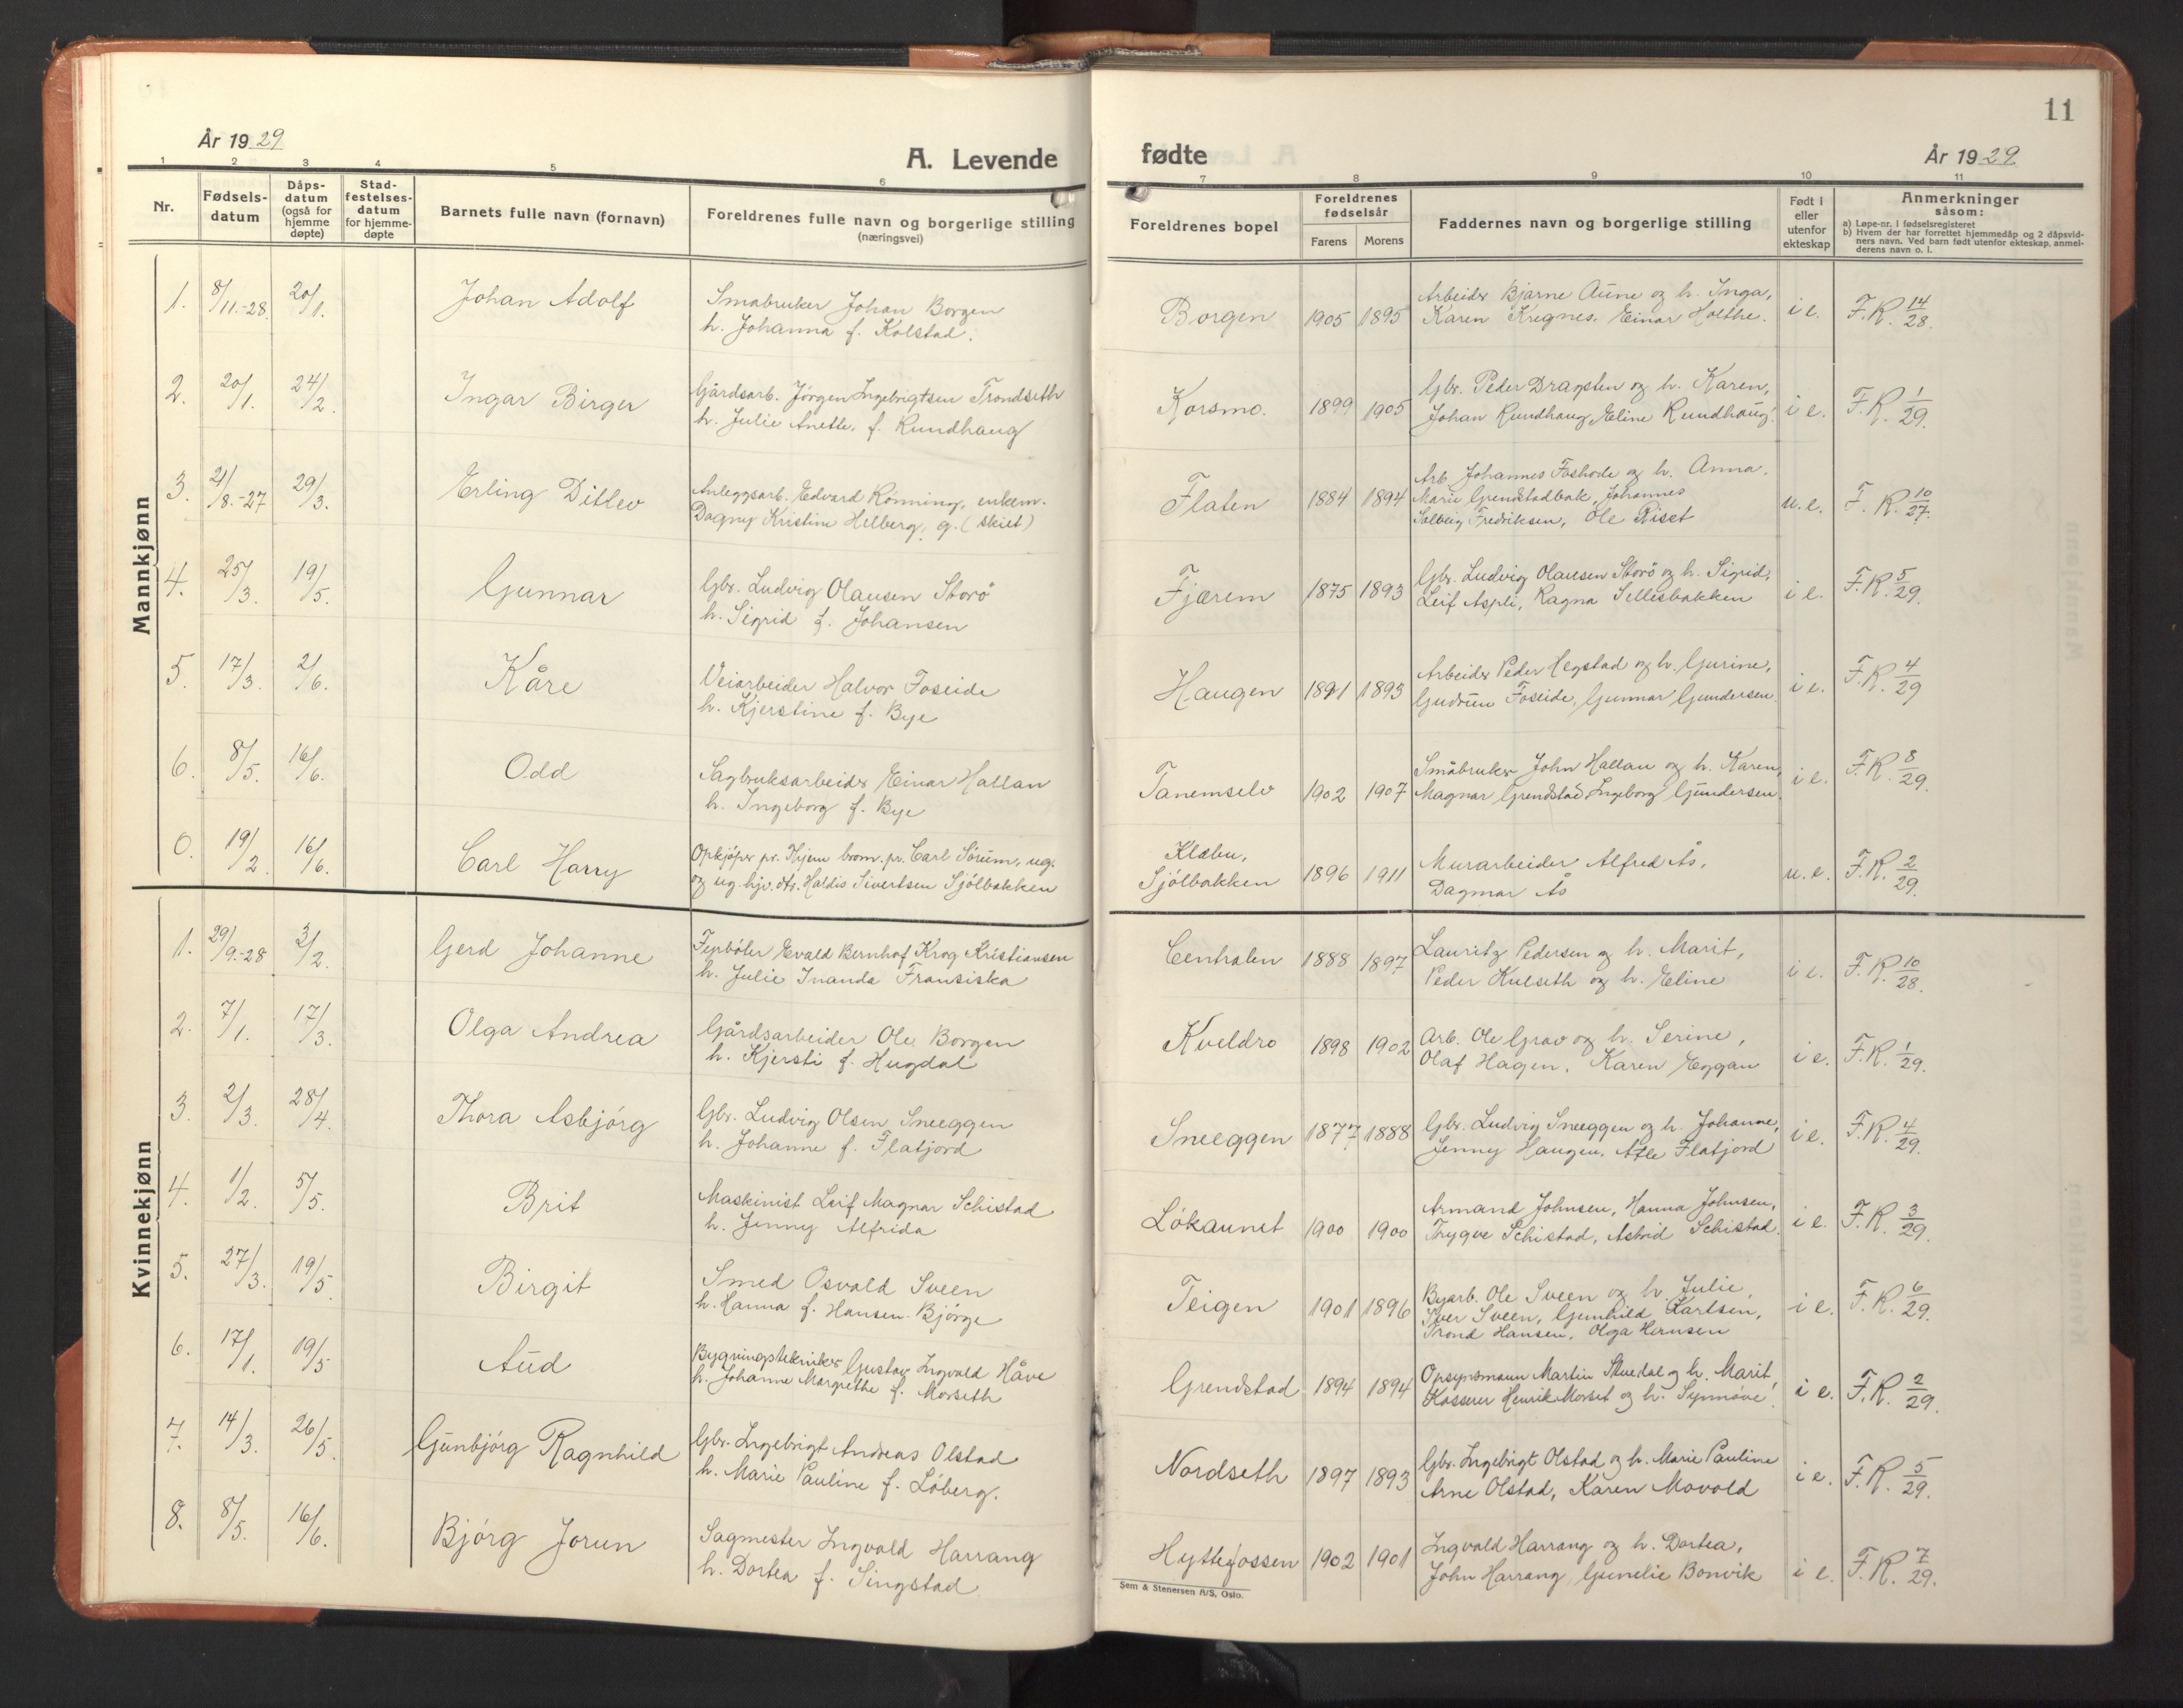 11
År 1929
A. Levende
fødte
År 1929
1 2 3 4 5 6 7 8 9 10 11
Nr.
Fødsels-
datum
Dåps-
datum
(også for
hjemme
døpte)
Stad-
festelses-
datum
for hjemme-
døpte
Barnets fulle navn (fornavn)
Foreldrenes fulle navn og borgerlige stilling
(næringsvei)
Foreldrenes bopel
Foreldrenes
fødselsår
Farens Morens
Faddernes navn og borgerlige stilling
Født i
eller
utenfor
ekteskap
Anmerkninger
såsom:
a) Løpe-nr. i fødselsregisteret
b) Hvem der har forrettet hjemmedåp og 2 dåpsvid-
ners navn. Ved barn født utenfor ekteskap, anmel-
derens navn o. l.
Mannkjønn
1. 8/11-28. 20/1. Johan Adolf
Småbruker Johan Borgen
h. Johanna f. Kolstad.
Borgen 1905 1895
Arbeider Bjarne Aune og h. Inga,
Karen Kregnes. Einar Holthe.
i e. F.R. 14/28.
2. 20/1. 24/2. Ingar Birger
Gårdsarb. Jörgen Ingebrigtsen Trondseth
h. Julie Anette, f. Rundhaug
Korsmo. 1899 1905
Gbr. Peder Dragsten og h. Karen,
Johan Rundhaug, Eline Rundhaug.
i e. F.R. 1/29.
3. 21/8.-27 29/3. Erling Ditlev
Anleggsarb. Edvard Rönning, enkem.
Dagny Kristine Helberg, g. (skilt)
Flaten 1884 1894
Arb. Johannes Foshode og h. Anna.
Marie Grendstadbak, Johannes
Solbeig Fredriksen, Ole Riset
u.e. F. R. 10/27.
4. 25/3. 19/5. Gunnar
Gbr. Ludvig Olausen Storö
h. Sigrid f. Johansen
Fjærem 1875 1893
Gbr. Ludvig Olausen Storö og h. Sigrid,
Leif Aspli, Ragna Sellesbakken
i e. F.R. 5/29.
5. 17/3. 2/6. Kåre
Veiarbeider Halvor Foseide
h. Kjerstine f. Bye
Haugen 1891 1893
Arbeider Peder Hegstad og h. Gurine,
Gudrun Foseide, Gunnar Gundersen.
i e. F.R. 4/29
6. 8/5. 16/6. Odd
Sagbruksarbeider Einar Hallan
h. Ingeborg f. Bye
Tanemselv 1902 1907
Småbruker John Hallan og h. Karen,
Magnar Grendstad Ingeborg Gundersen.
i e. F.R. 8/29.
0. 19/2. 16/6. Carl Harry
Opkjöper pr. Hjem brom. pr. Carl Sörum, ug.
og ug. hjv. dtr. Haldis Sivertsen Sjölbakken
Klæbu,
Sjölbakken 1896 1911
Murarbeider Alfred Ås,
Dagmar Ås
u.e. F.R. 2/29.
Kvinnekjønn
1. 29/9.-28 3/2. Gerd Johanne
Fyrböter Evald Bernhof Krog Kristiansen
h. Julie Inanda Fransiska
Centralen 1888 1897
Lauritz Pedersen og h. Marit,
Peder Kulseth og h. Eline
i e. F.R. 10/28.
2. 7/1. 17/3. Olga Andrea
Gårdsarbeider Ole Borgen
h. Kjersti f. Hugdal
Kveldro 1898 1902
Arb. Ole Grav og h. Serine,
Olaf Hagen, Karen Eggan
i e. F.R. 1/29.
3. 2/3. 28/4. Thora Asbjörg
Gbr. Ludvig Olsen Sneeggen
h. Johanne f. Flatjord
Sneeggen 1877 1888
Gbr. Ludvig Sneeggen og h. Johanne,
Jenny Haugen, Atle Flatjord
i e. F.R. 4/29.
4. 1/2. 5/5. Brit
Maskinist Leif Magnar Schistad
h. Jenny Alfrida
Lökaunet 1900 1900
Armand Johnsen, Hanna Johnsen,
Trygve Schistad, Astrid Schistad.
i e. F.R. 3/29.
5. 27/3. 19/5. Birgit
Smed Osvald Sveen
h. Hanna f. Hansen Bjørge
Teigen 1901 1896
Byarb. Ole Sveen og h. Julie,
Iver Sveen, Gunhild Karlsen,
Trond Hansen, Olga Hernsen
i e. F.R. 6/29.
6. 17/1. 19/5 Aud
Bygningstekniker Gustav Ingvald Håve
h. Johanne Margrethe f. Morseth
Grendstad 1894 1894
Opsynsmann Martin Stuedal og h. Marit,
Kasserer Henrik Morset og h. Synnöve.
i e. F.R. 2/29.
7. 14/3. 26/5. Gunbjörg Ragnhild
Gbr. Ingebrigt Andreas Olstad
h. Marie Pauline f. Löberg.
Nordseth 1897 1893
Gbr. Ingebrigt Olstad og h. Marie Pauline
Arne Olstad, Karen Movold
i e. F.R. 5/29.
8. 8/5. 16/6. Bjórg Jorun
Sagmester Ingvald Harrang
h. Dortea f. Singstad.
Hyttefossen 1902 1901
Ingvald Harrang og h. Dortea,
John Harrang, Gunelie Bonvik
i e. F.R. 7/29.
Sem & Stenersen A/S, Oslo.